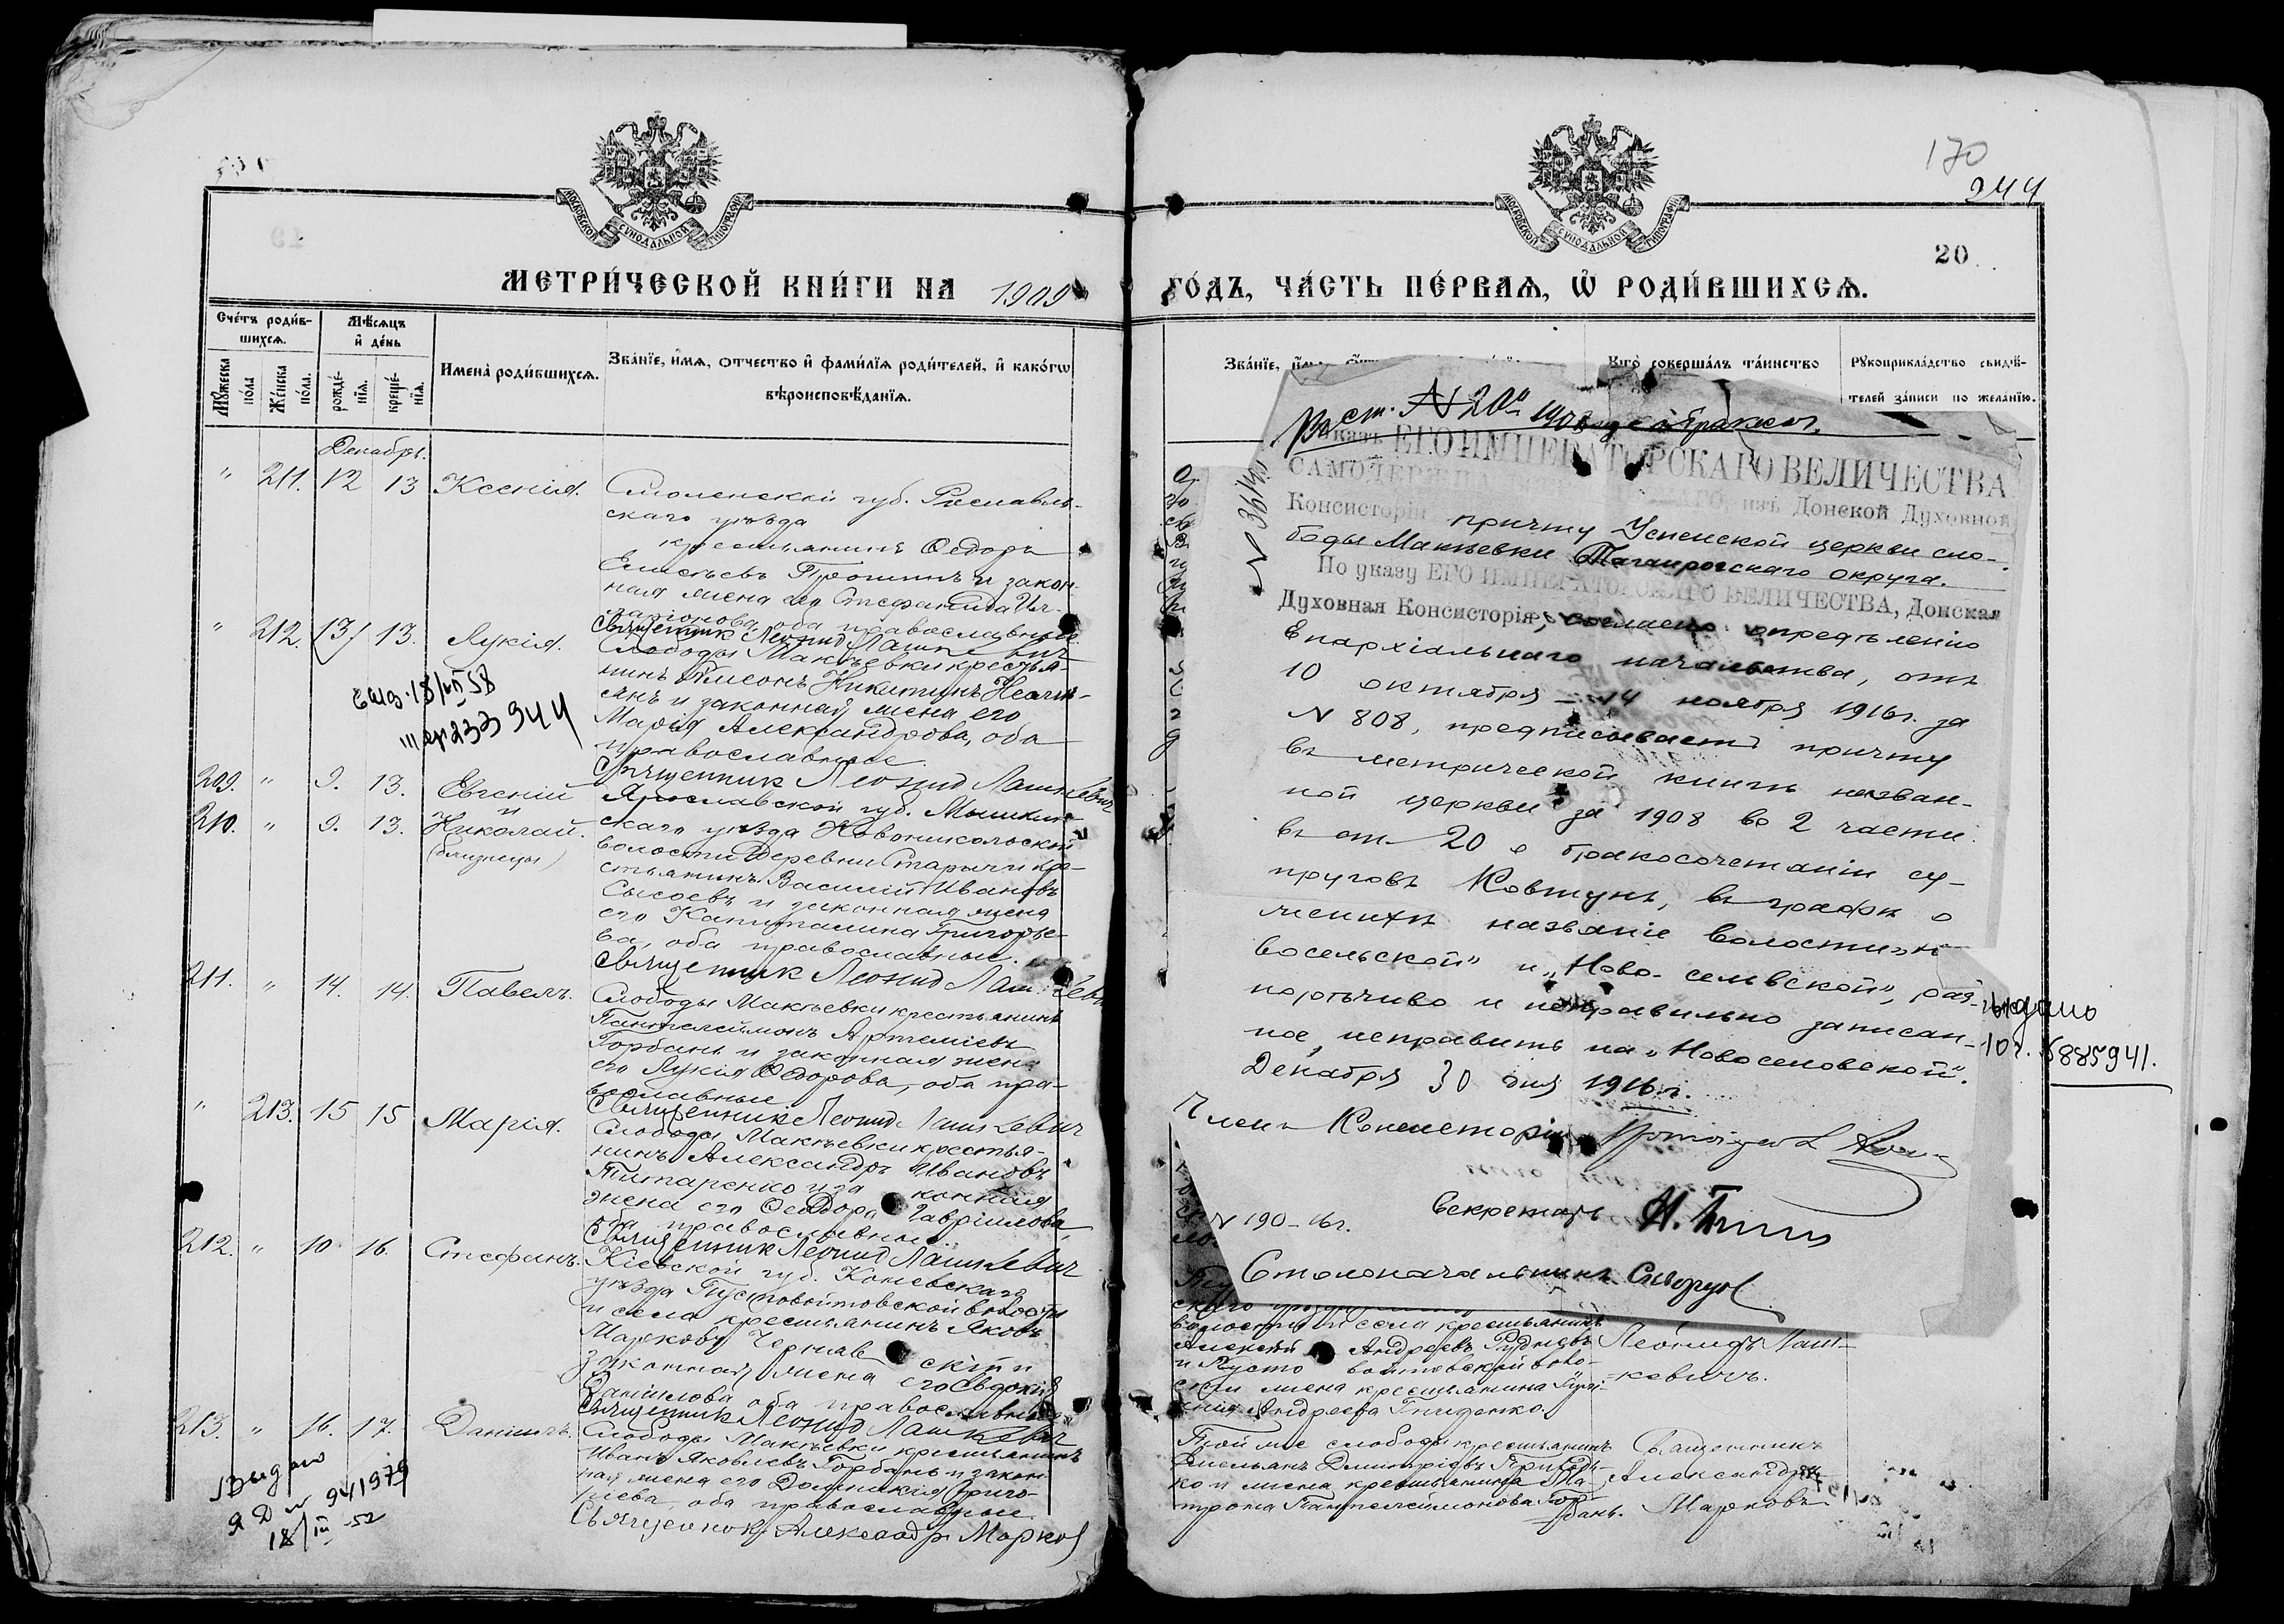 МОСКОВСКОЙ СѴНОДАЛЬНОЙ ТИПОГРАФІИ
МЕТРИ́ЧЕСКОЙ КНИ́ГИ НА 1909
Сче́тъ роди́в-
шихсѧ.
Мѣ́сѧцъ
и҆ де́нь
Мꙋ́жеска
по́ла
Же́нска
по́ла.
рожде́-
нїѧ.
креще́-
нїѧ.
Имена̀ роди́вшихсѧ.
Зва́нїе, и҆́мѧ, ѻ҆́тчество и҆ фами́лїѧ роди́телей, и҆ како́гѡ
вѣроисповѣ́данїѧ.
Декабрь.
" 211. 12 13 Ксенія.
Смоленской губ. Рославль-
скаго уѣзда
крестьянинъ Ѳедоръ
Елисѣевъ Прошинъ и закон-
ная жена его Стефанида Ил-
ларіонова, оба православные.
Священник Леонид Лашкевич
" 212. 13 13. Лукія.
Слободы Макѣевки крестья-
нинъ Симеонъ Никитинъ
и законная жена его
Марія Александрова, оба
православные.
Священник Леонид Лашкевич
944
209. " 9. 13. Евгеній
и
210. " 9. 13. Николай.
(близнецы)
Ярославской губ. Мышкин-
скаго уѣзда Новоникольской
волости деревни кре-
стьянинъ Василій Ивановъ
Сысоевъ и законная жена
его Капиталина Григорье-
ва, оба православные.
Священник Леонид Лашкевич
211. " 14. 14. Павелъ.
Слободы Макѣевки крестьянинъ
Пантелеймонъ Артеміевъ
Горбань и законная жена
его Лукія Ѳедорова, оба пра-
вославные
Священник Леонид Лашкевич
" 213. 15 15 Марія.
Слободы Макѣевки крестья-
нинъ Александръ Ивановъ
Титаренко и законная
жена его Ѳеодора Гавріилова,
оба православные.
Священник Леонид Лашкевич
212. " 10. 16. Стефанъ.
Кіевской губ. Каневскаго
уѣзда Пустовойтовской волости
и села крестьянинъ Яковъ
Марковъ Чернявскій и
законная жена его Евдокія
Даніилова оба православные
Священник Леонид Лашкевич
213. " 16. 17. Даніилъ.
Слободы Макѣевки крестьянинъ
Иванъ Яковлевъ Горбань и закон-
ная жена его Домникія Григо-
рьева, оба православные.
Священник Александр Марков
Видано
941979
18/III-52
МОСКОВСКОЙ СѴНОДАЛЬНОЙ ТИПОГРАФІИ
170
944
20
ГО́ДЪ, ЧА́СТЬ ПЕ́РВАѦ, Ѽ РОДИ́ВШИХСѦ.
Зва́нїе,
Кто̀ соверша́лъ та́инство
Рꙋкоприкла́дство свидѣ́-
телей за́писи по жела́нїю.
ст. № 20й 1908
Указъ ЕГО ИМПЕРАТОРСКАГО ВЕЛИЧЕСТВА
САМОДЕРЖ ГО, изъ Донской Духовной
Консисторіи
причту Успенской церкви сло-
боды Макѣевки Таганрогскаго округа.
По указу ЕГО ИМПЕРАТОРСКАГО ВЕЛИЧЕСТВА, Донская
Духовная Консисторія, согласно опредѣленію
Епархіальнаго начальства, отъ
10 октября – 14 ноября 1916г. за
N 808, предписываетъ причту
въ метрической книгѣ назван-
ной церкви за 1908 во 2 части
въ ст. 20 о бракосочетаніи су-
пруговъ Ковтунъ, въ графѣ о
женихѣ названіе волости „Но-
восельской" и „Ново-семвской", раз-
норѣчиво и неправильно записан-
ное, исправить на „Новоселовской".
Декабря 30 дня 1916г.
Членъ Консисторіи
Секретарь
N 190-16г.
Столоначальникъ
видано
5885941.
волости и села крестьянинъ
Алексѣй Андреевъ Рудневъ
и Пустовойтовской воло-
сти жена крестьянина
Андреева Гниденко.
Леонидъ Лаш-
кевичъ.
Той же слободы крестьянинъ
Емельянъ Дмитріевъ
ко и жена крестьянина Ма-
трона Пантелеймонова Гор-
бань.
Священникъ
Александръ
Марковъ.